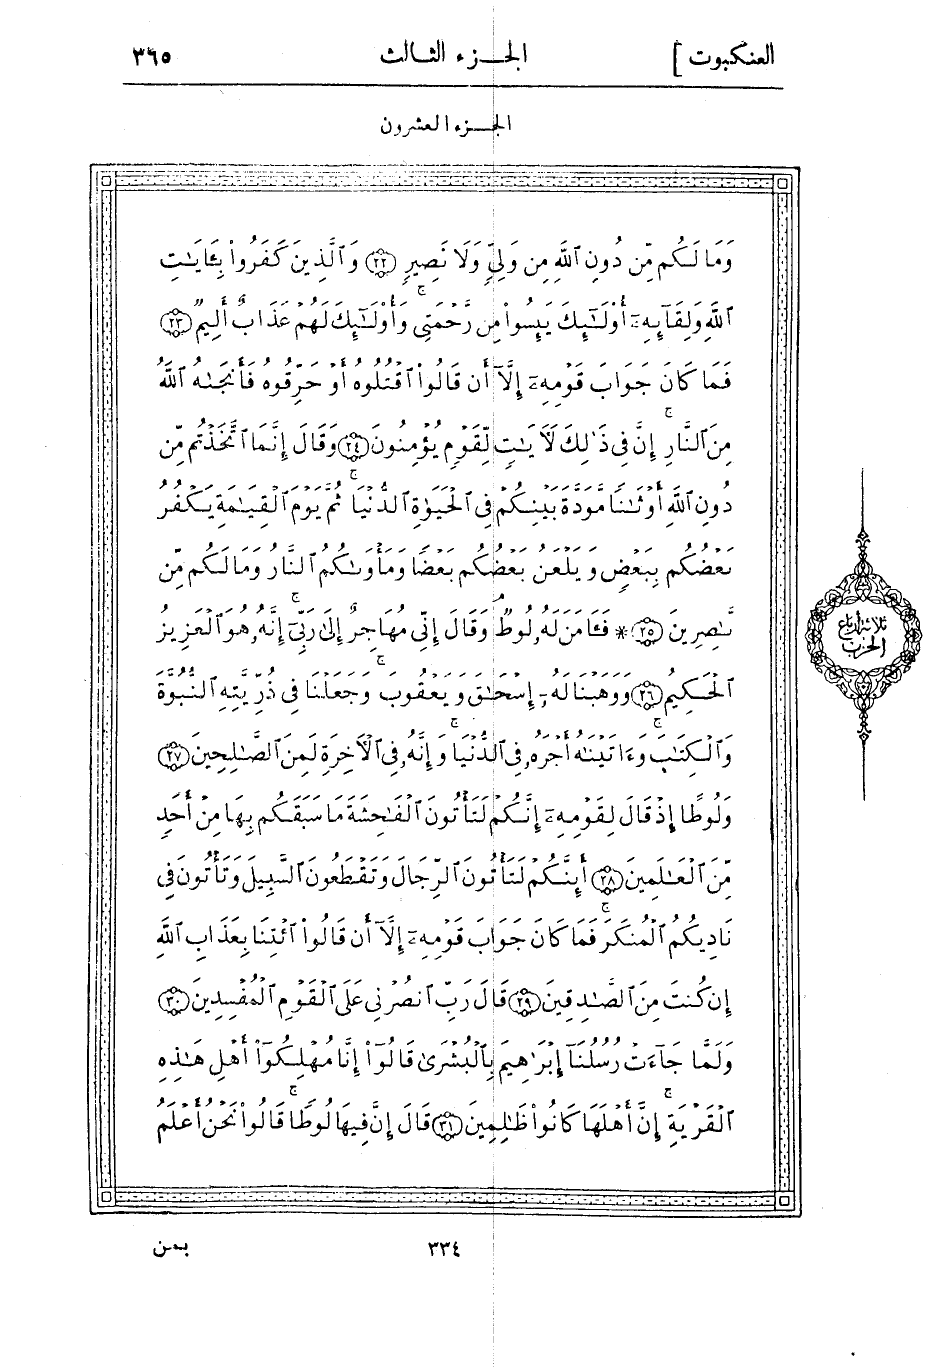 العنكبوت ] الجـزء الثـالث ٣٦٥
الجـزء العشرون
وَمَا لَكُم مِّن دُونِ ٱللَّهِ مِن وَلِيٍّ وَلَا نَصِيرٍ ۝٢٢ وَٱلَّذِينَ كَفَرُوا۟ بِـَٔايَـٰتِ
ٱللَّهِ وَلِقَآئِهِۦٓ أُو۟لَـٰٓئِكَ يَئِسُوا۟ مِن رَّحْمَتِى وَأُو۟لَـٰٓئِكَ لَهُمْ عَذَابٌ أَلِيمٌ ۝٢٣
فَمَا كَانَ جَوَابَ قَوْمِهِۦٓ إِلَّآ أَن قَالُوا۟ ٱقْتُلُوهُ أَوْ حَرِّقُوهُ فَأَنجَىٰهُ ٱللَّهُ
مِنَ ٱلنَّارِ ۚ إِنَّ فِى ذَٰلِكَ لَـَٔايَـٰتٍ لِّقَوْمٍ يُؤْمِنُونَ ۝٢٤ وَقَالَ إِنَّمَا ٱتَّخَذْتُم مِّن
دُونِ ٱللَّهِ أَوْثَـٰنًا مَّوَدَّةَ بَيْنِكُمْ فِى ٱلْحَيَوٰةِ ٱلدُّنْيَا ۖ ثُمَّ يَوْمَ ٱلْقِيَـٰمَةِ يَكْفُرُ
بَعْضُكُم بِبَعْضٍ وَيَلْعَنُ بَعْضُكُم بَعْضًا وَمَأْوَىٰكُمُ ٱلنَّارُ وَمَا لَكُم مِّن
نَّـٰصِرِينَ ۝٢٥ * فَـَٔامَنَ لَهُۥ لُوطٌ ۘ وَقَالَ إِنِّى مُهَاجِرٌ إِلَىٰ رَبِّىٓ ۚ إِنَّهُۥ هُوَ ٱلْعَزِيزُ
ٱلْحَكِيمُ ۝٢٦ وَوَهَبْنَا لَهُۥٓ إِسْحَـٰقَ وَيَعْقُوبَ وَجَعَلْنَا فِى ذُرِّيَّتِهِ ٱلنُّبُوَّةَ
وَٱلْكِتَـٰبَ وَءَاتَيْنَـٰهُ أَجْرَهُۥ فِى ٱلدُّنْيَا ۖ وَإِنَّهُۥ فِى ٱلْـَٔاخِرَةِ لَمِنَ ٱلصَّـٰلِحِينَ ۝٢٧
وَلُوطًا إِذْ قَالَ لِقَوْمِهِۦٓ إِنَّكُمْ لَتَأْتُونَ ٱلْفَـٰحِشَةَ مَا سَبَقَكُم بِهَا مِنْ أَحَدٍ
مِّنَ ٱلْعَـٰلَمِينَ ۝٢٨ أَئِنَّكُمْ لَتَأْتُونَ ٱلرِّجَالَ وَتَقْطَعُونَ ٱلسَّبِيلَ وَتَأْتُونَ فِى
نَادِيكُمُ ٱلْمُنكَرَ ۖ فَمَا كَانَ جَوَابَ قَوْمِهِۦٓ إِلَّآ أَن قَالُوا۟ ٱئْتِنَا بِعَذَابِ ٱللَّهِ
إِن كُنتَ مِنَ ٱلصَّـٰدِقِينَ ۝٢٩ قَالَ رَبِّ ٱنصُرْنِى عَلَى ٱلْقَوْمِ ٱلْمُفْسِدِينَ ۝٣٠
وَلَمَّا جَآءَتْ رُسُلُنَآ إِبْرَٰهِيمَ بِٱلْبُشْرَىٰ قَالُوٓا۟ إِنَّا مُهْلِكُوٓا۟ أَهْلِ هَـٰذِهِ
ٱلْقَرْيَةِ ۖ إِنَّ أَهْلَهَا كَانُوا۟ ظَـٰلِمِينَ ۝٣١ قَالَ إِنَّ فِيهَا لُوطًا ۚ قَالُوا۟ نَحْنُ أَعْلَمُ
ثلاثة أرباع
الحزب
٣٣٤ بمن